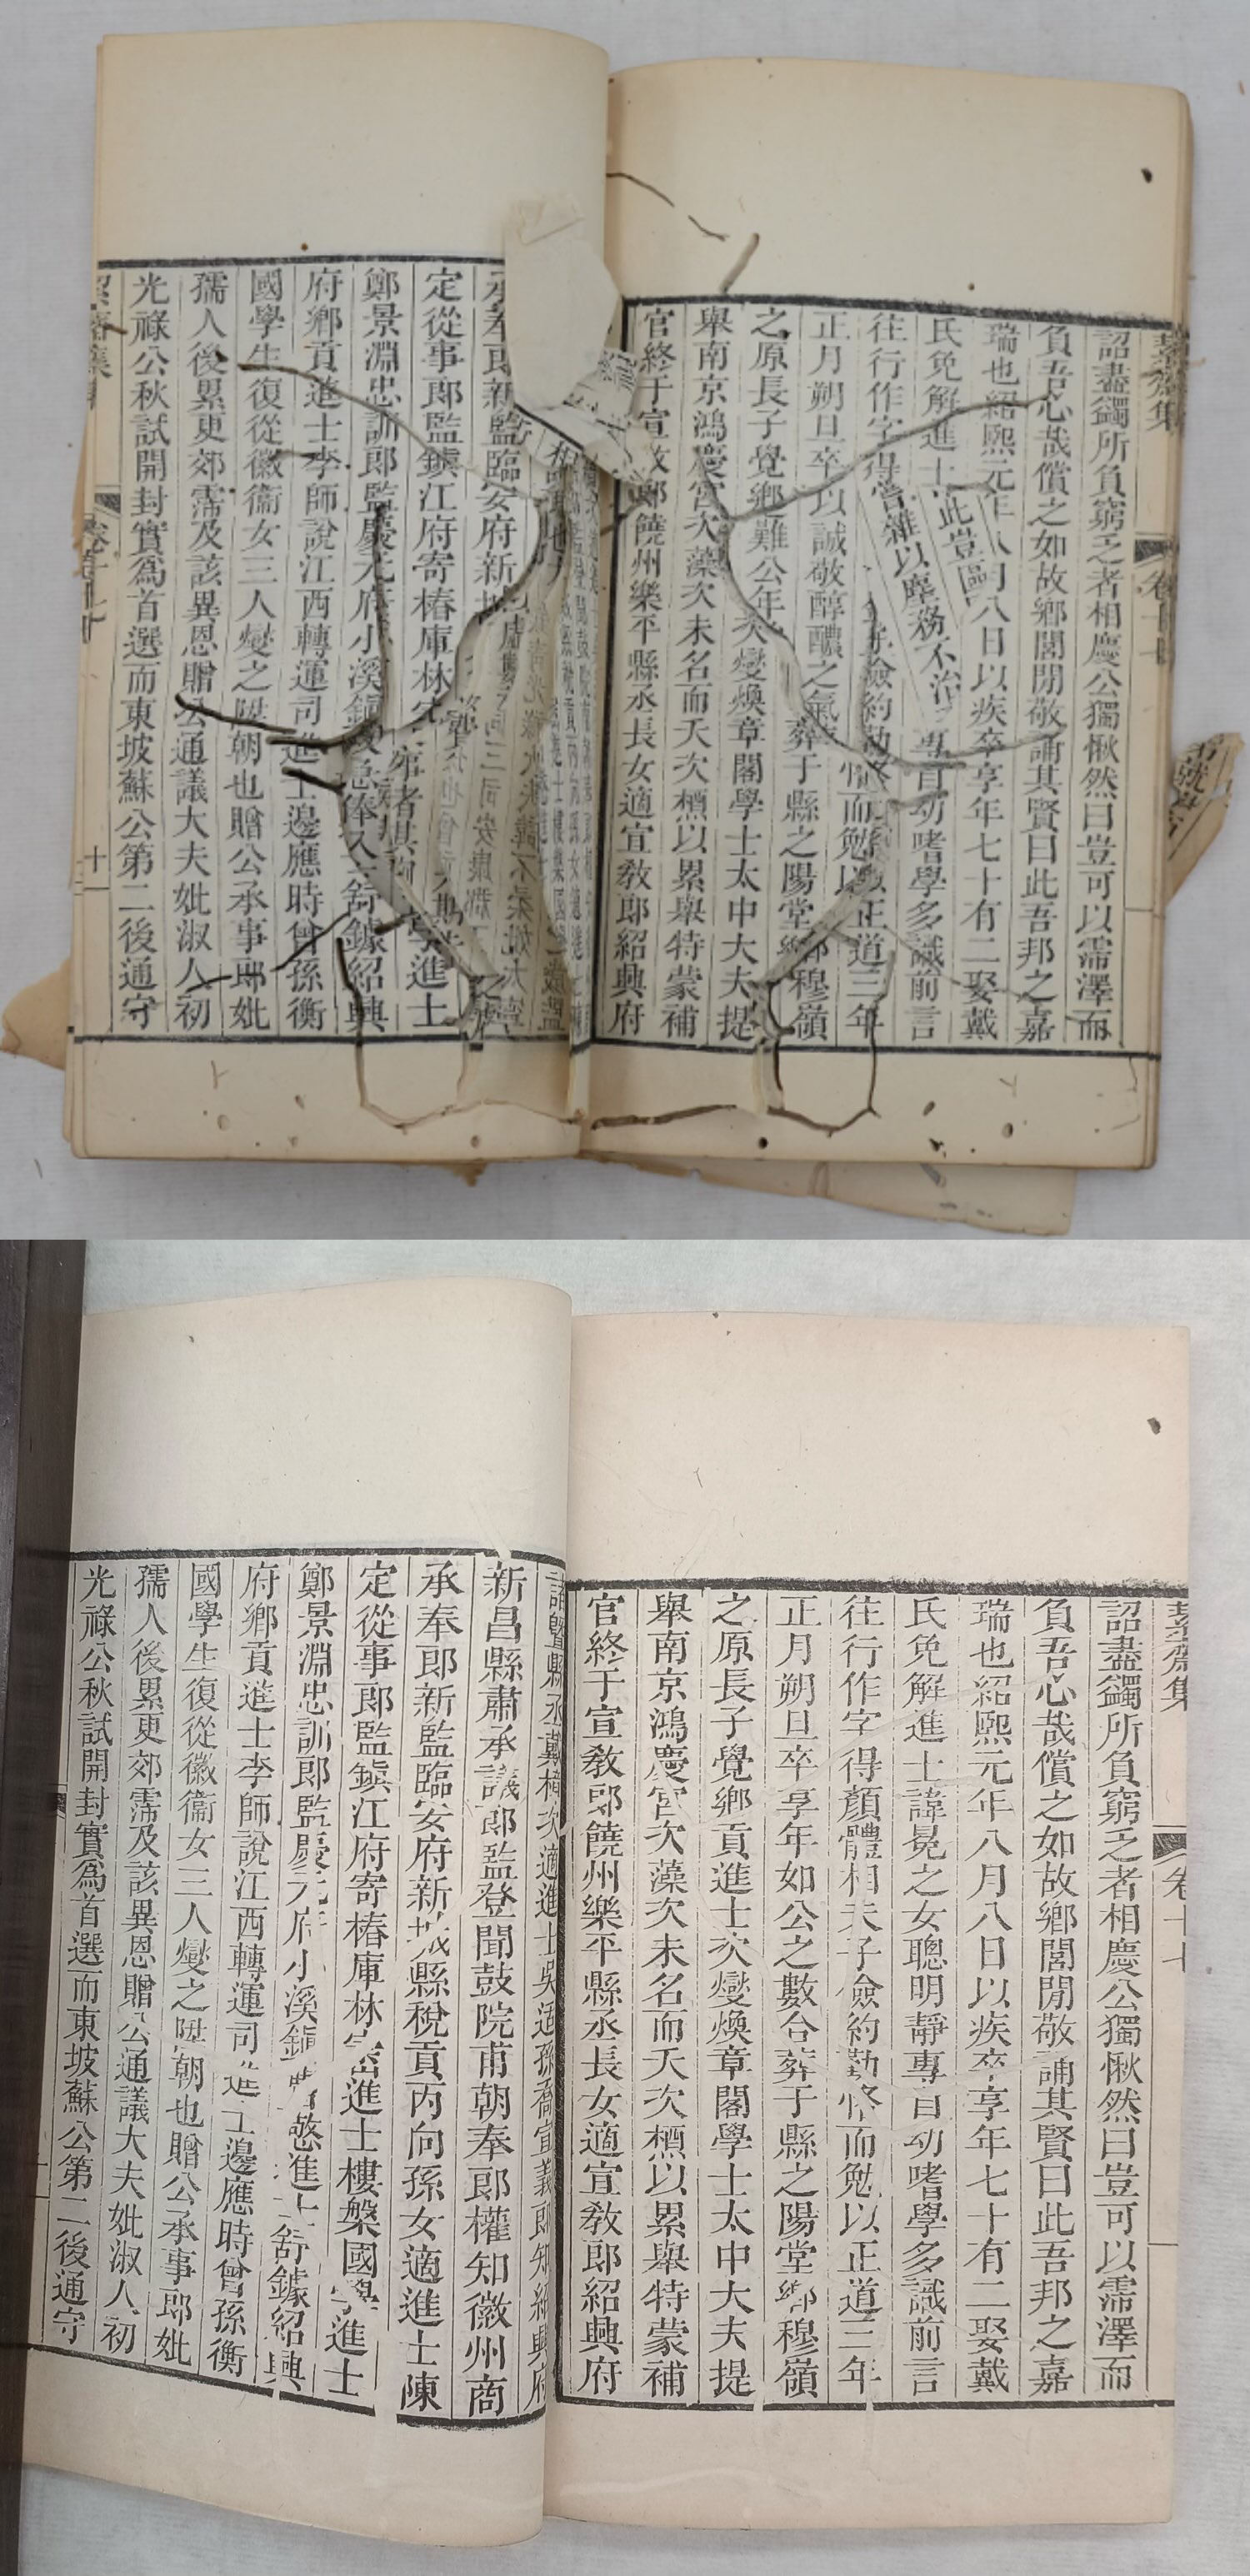 絜齋集 卷十七
詔盡蠲所負窮乏者相慶公獨愀然曰豈可以霈澤而
負吾心哉償之如故鄉閭閒敬誦其賢曰此吾邦之嘉
瑞也紹熙元年 月八日以疾卒享年七十有二娶戴
氏免解進士 此豈區 專自幼嗜學多識前言
往行作字得 嘗雜以塵務不治 儉約勤修而勉以正道三年
正月朔旦卒 以誠敬醇醲之氣 葬于縣之陽堂鄉穆嶺
之原長子覺鄉 難公年 次燮煥章閣學士太中大夫提
舉南京鴻慶宮次藻次未名而夭次槱以累舉特蒙補
官終于宣敎郎饒州樂平縣丞長女適宣敎郎紹興府
承奉郎新監臨安府新城
定從事郎監鎭江府寄樁庫林 學進士
鄭景淵忠訓郎監慶元府小溪鎭 舒鐻紹興
府鄉貢進士李師說江西轉運司進士邊應時曾孫衡
國學生復從徽衞女三人燮之陞朝也贈公承事郎妣
孺人後累更郊霈及該異恩贈公通議大夫妣淑人初
光祿公秋試開封實爲首選而東坡蘇公第二後通守
絜齋集 卷十七 十
絜齋集 卷十七
詔盡蠲所負窮乏者相慶公獨愀然曰豈可以霈澤而
負吾心哉償之如故鄉閭閒敬誦其賢曰此吾邦之嘉
瑞也紹熙元年八月八日以疾卒享年七十有二娶戴
氏免解進士諱冕之女聰明靜專自幼嗜學多識前言
往行作字得顏體相夫子儉約勤修而勉以正道三年
正月朔旦卒享年如公之數合葬于縣之陽堂鄉穆嶺
之原長子覺鄉貢進士次燮煥章閣學士太中大夫提
舉南京鴻慶宮次藻次未名而夭次槱以累舉特蒙補
官終于宣敎郎饒州樂平縣丞長女適宣敎郎紹興府
諸曁縣丞戴樟次適進士吳适孫喬宣義郎知紹興府
新昌縣肅承議郎監登聞鼓院甫朝奉郎權知徽州商
承奉郎新監臨安府新城縣稅貢丙向孫女適進士陳
定從事郎監鎭江府寄樁庫林密進士樓槃國學進士
鄭景淵忠訓郎監慶元府小溪鎭 憼進士舒鐻紹興
府鄉貢進士李師說江西轉運司進士邊應時曾孫衡
國學生復從徽衞女三人燮之陞朝也贈公承事郎妣
孺人後累更郊霈及該異恩贈公通議大夫妣淑人初
光祿公秋試開封實爲首選而東坡蘇公第二後通守